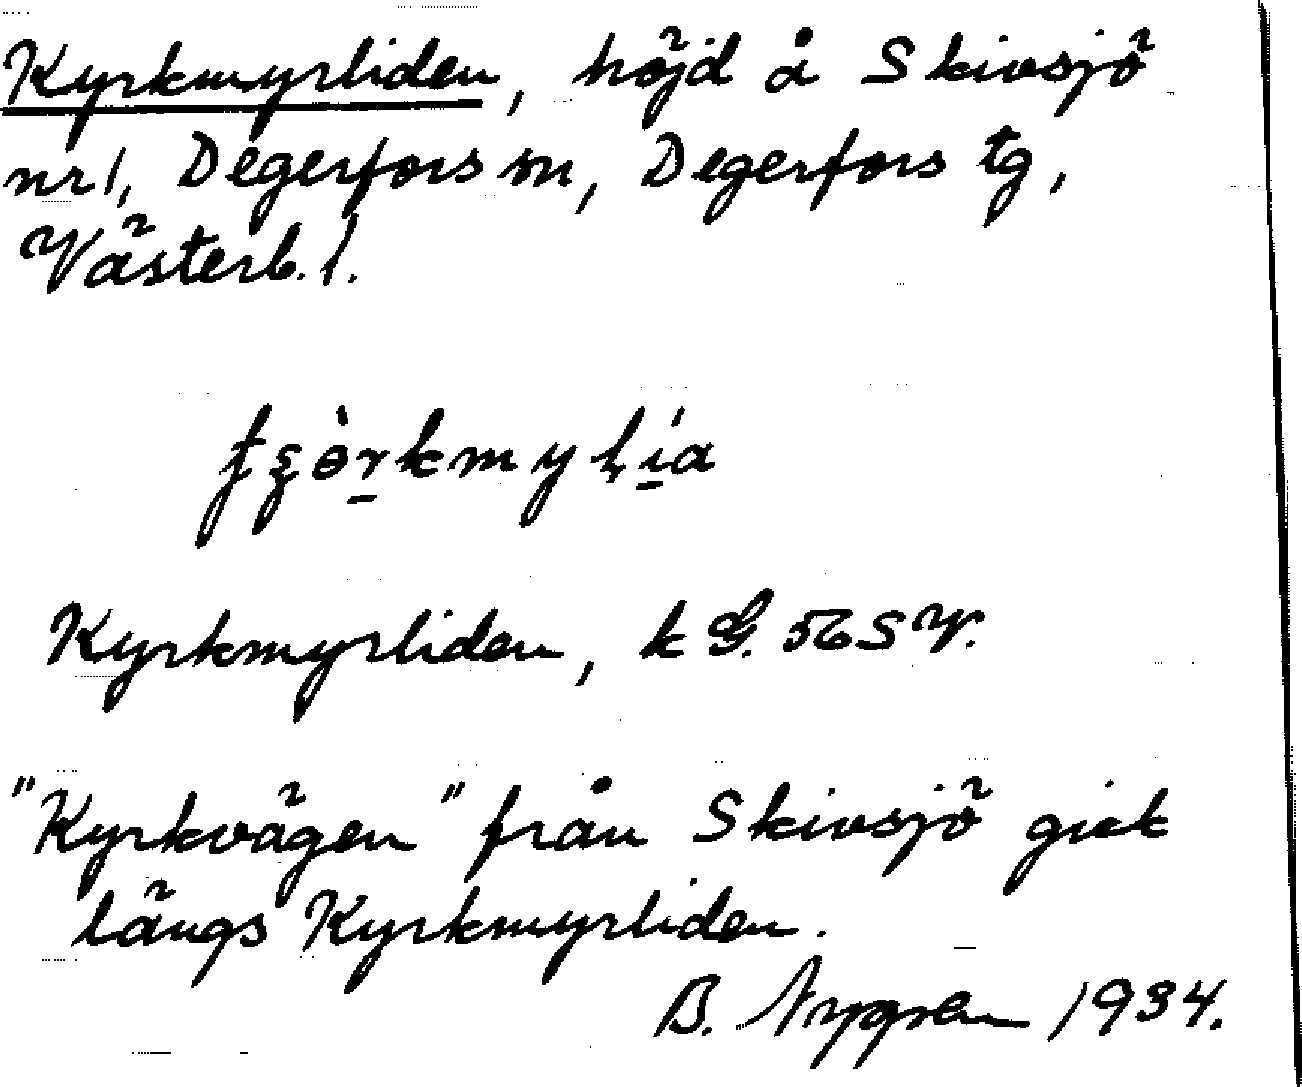 Kyrkmyrliden, höjd å Skivsjö
nr 1, Degerfors sn, Degerfors tg,
Västerb. l.
Kyrkmyrliden, k G. 56 S V.
"Kyrkvägen" från Skivsjö gick
längs Kyrkmyrliden.
B. Nygren 1934.